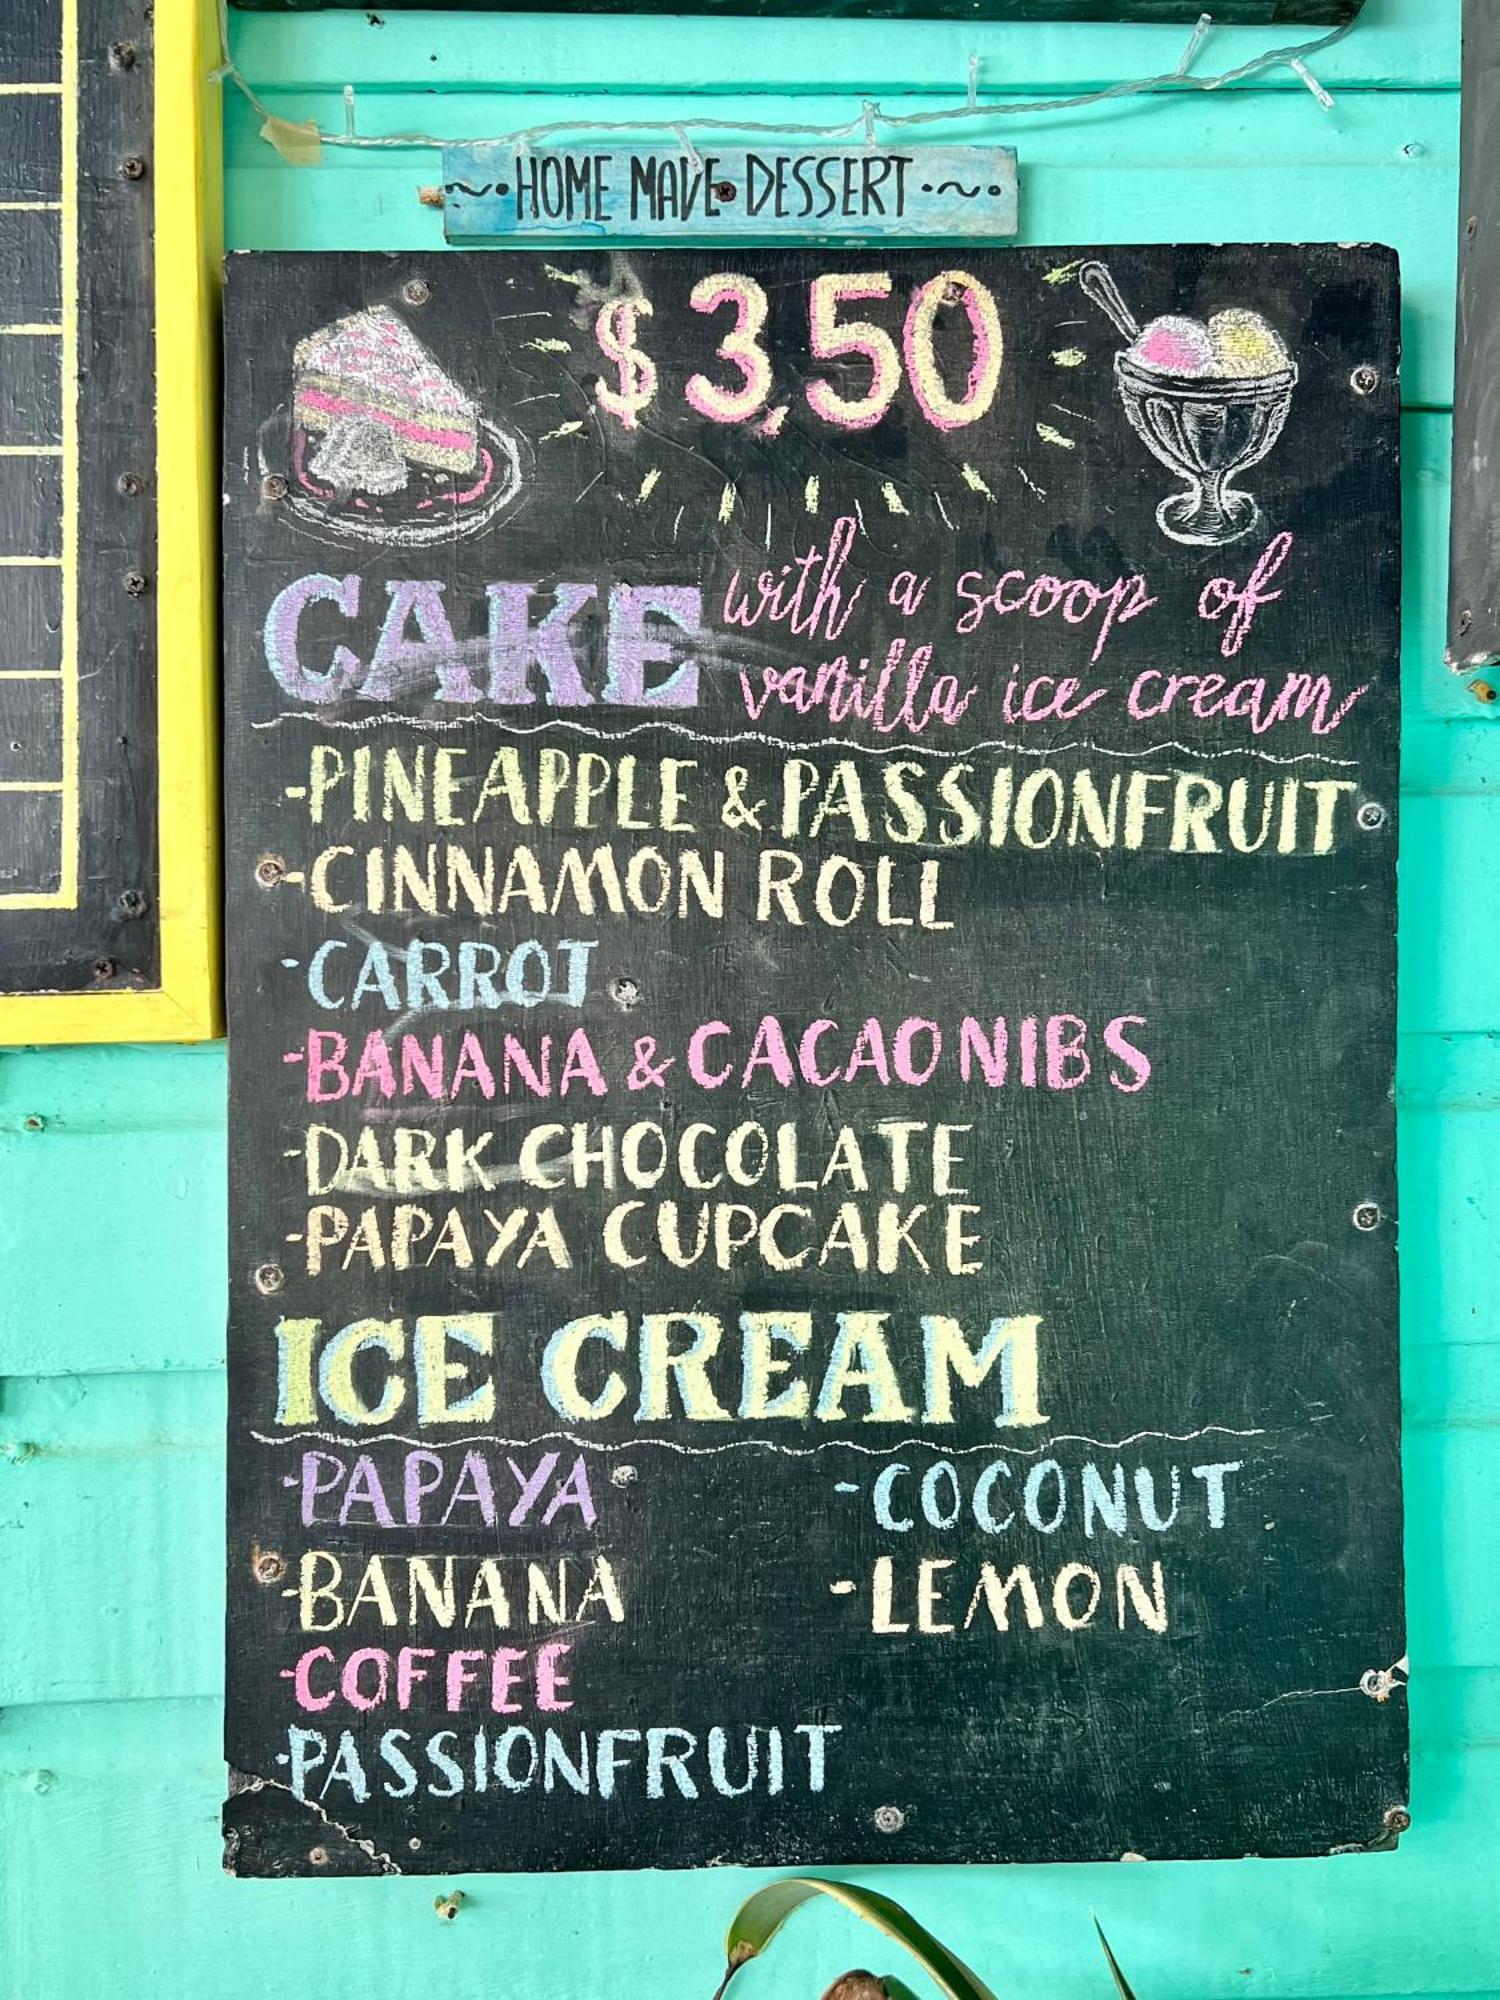 ~•HOME MADE DESSERT•~•
$3,50
CAKE with a scoop of
vanilla ice cream
-PINEAPPLE & PASSIONFRUIT
-CINNAMON ROLL
-CARROT
-BANANA & CACAO NIBS
-DARK CHOCOLATE
-PAPAYA CUPCAKE
ICE CREAM
-PAPAYA
-BANANA
-COFFEE
-PASSIONFRUIT
-COCONUT
-LEMON